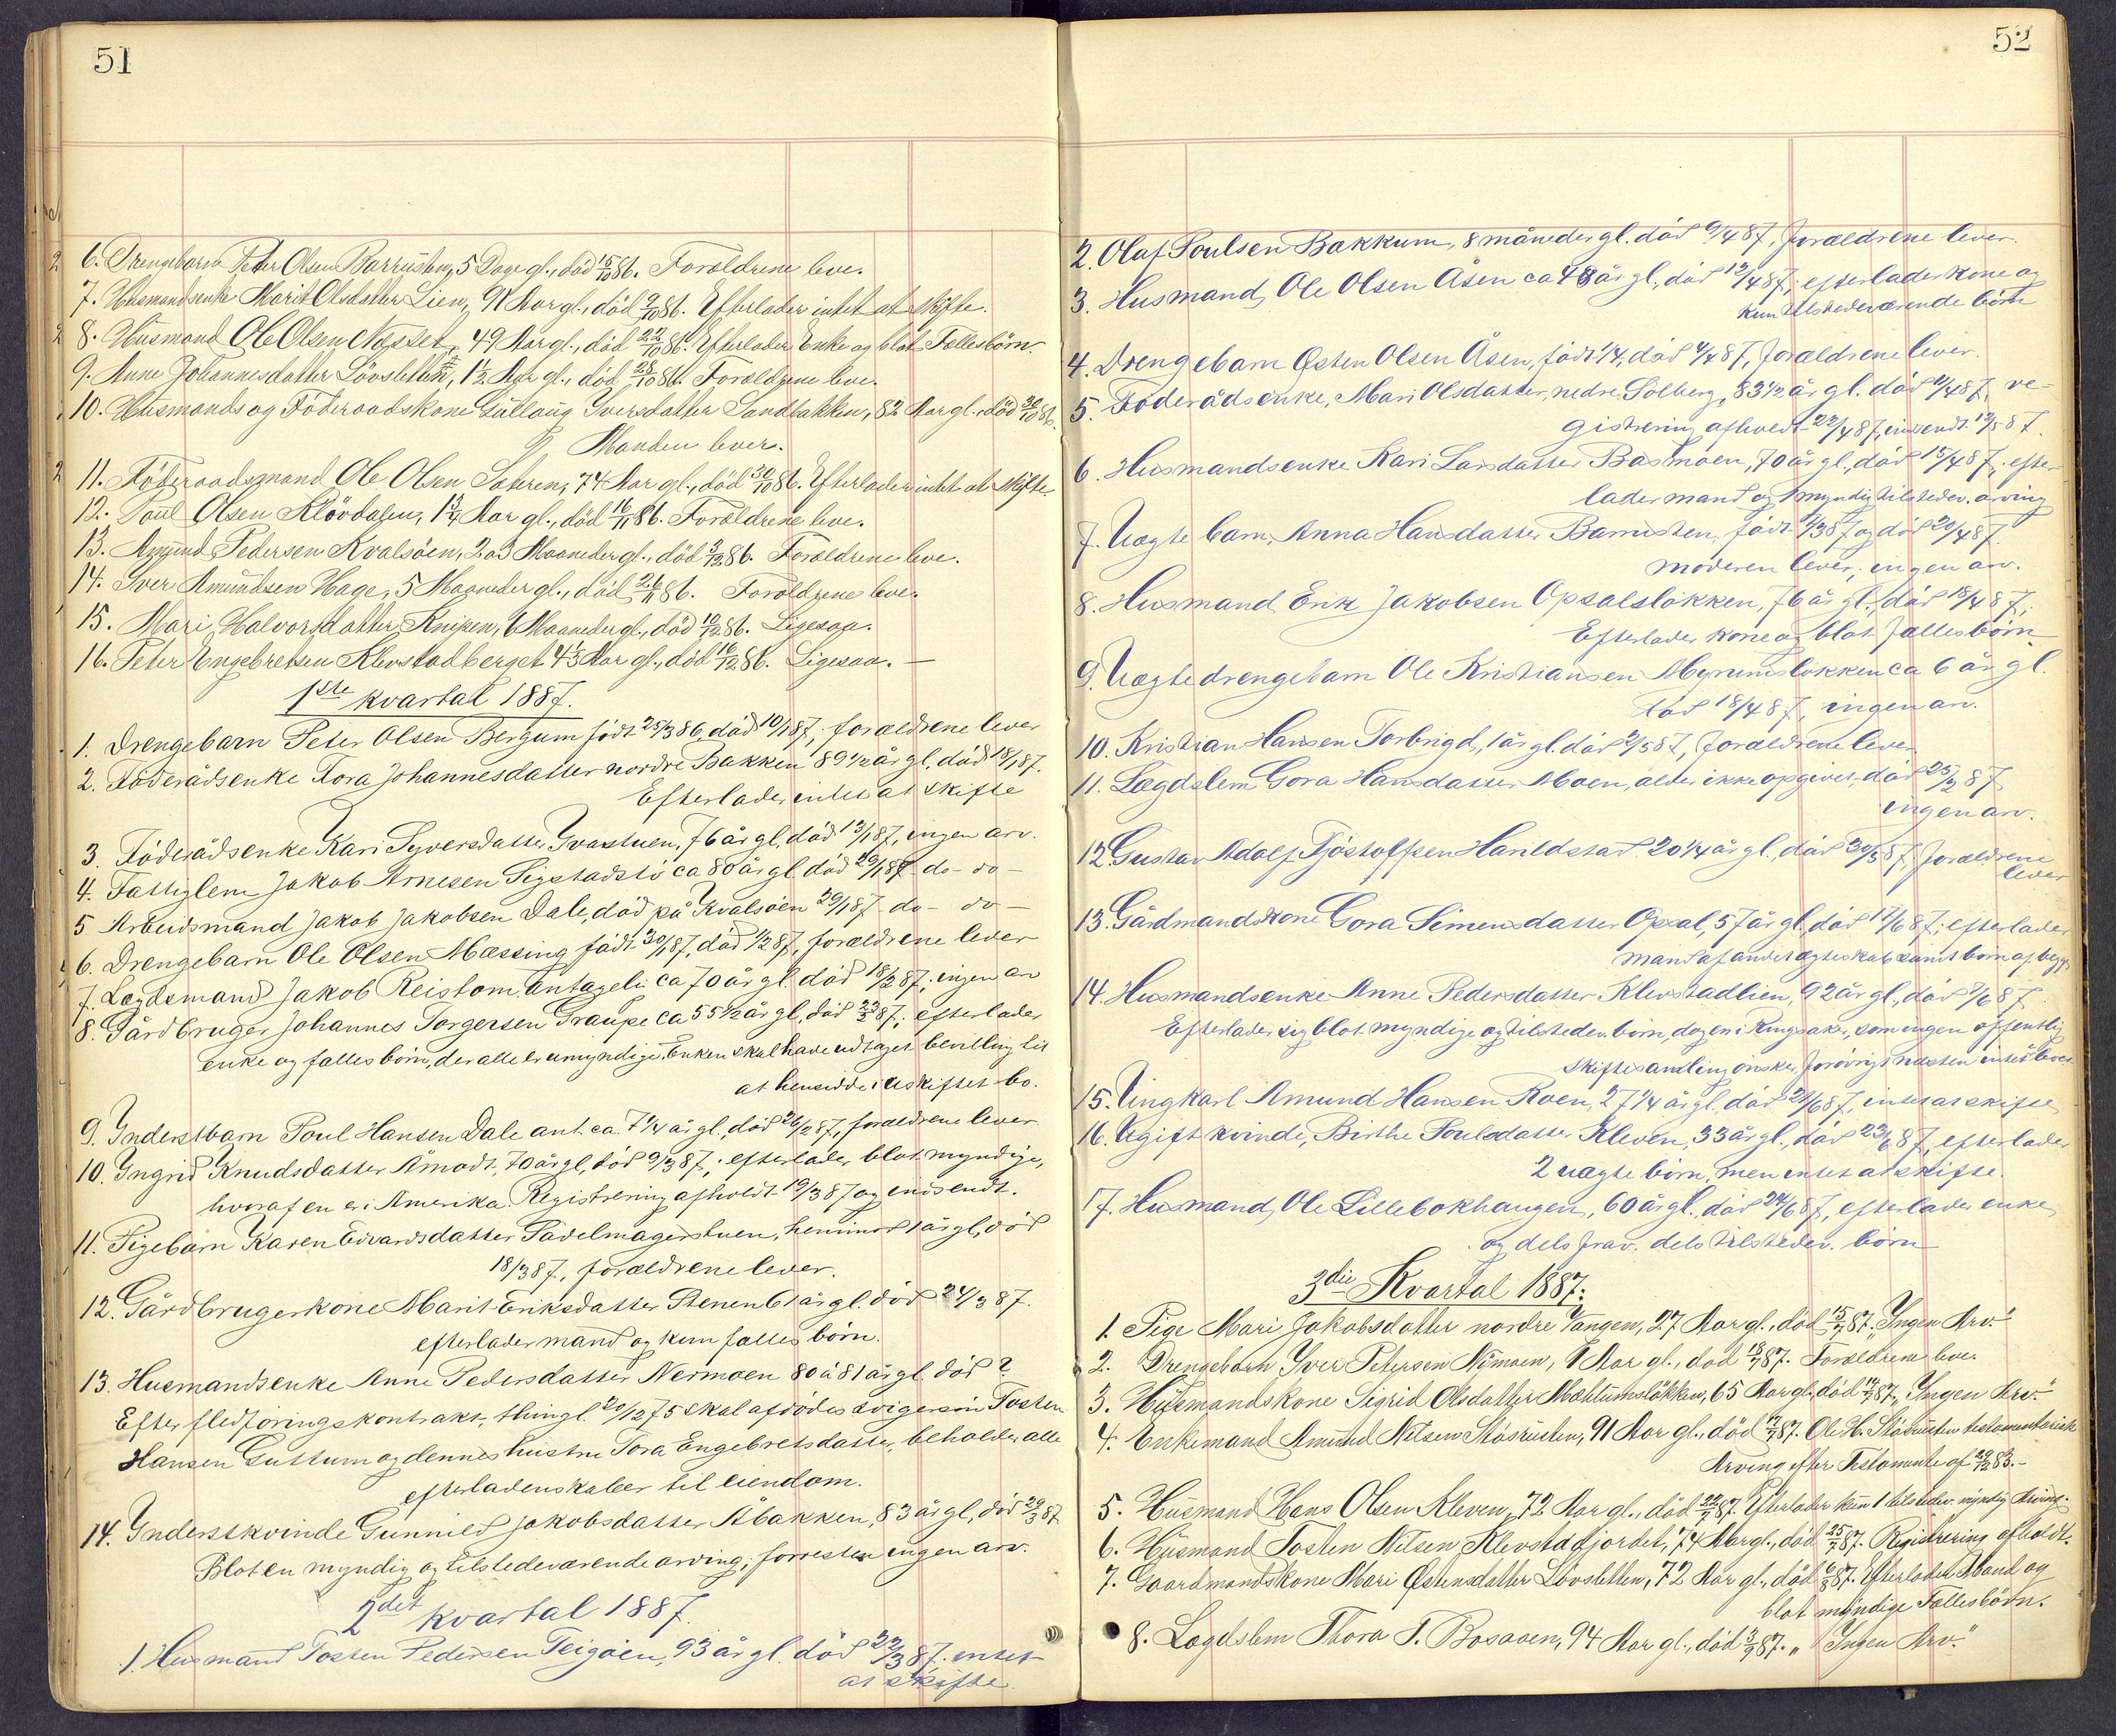 51
6. Drengebarn Peter Olsen Barrusten, 5 Dage gl., död 15/10 86. Forældrene leve.
7. Husmandsenke Marit Olsdatter Lien, 91 Aar gl., död 9/10 86. Efterlader intet at skifte.
8. Husmand Ole Olsen Næsset, 49 Aar gl., död 22/10 86. Efterlader Enke og blot Fællesbörn.
9. Anne Johannesdatter Lövsletten, 1½ Aar gl., död 28/10 86. Forældrene leve.
10. Husmands og Föderaadskone Gullaug Iversdatter Sandbakken, 82 Aar gl., död 30/10 86.
Manden lever.
11. Föderaadsmand Ole Olsen Sateren, 74 Aar gl., död 30/10 86. Efterlader intet at skifte.
12. Poul Olsen Klövdalen, 1¾ Aar gl., död 16/11 86. Forældrene leve.
13. Amund Pedersen Kvalsöen, 2 a 3 Maaneder gl., död 3/12 86. Forældrene leve.
14. Iver Amundsen Hage, 5 Maaneder gl., död 26/11 86. Forældrene leve.
15. Mari Halvorsdatter Knipen, 6 Maaneder gl., död 10/12 86. Ligesaa.
16. Peter Engebretsen Klevstadberget 4⅓ Aar gl., död 16/12 86. Ligesaa. —
1ste kvartal 1887.
1. Drengebarn Peter Olsen Bergum födt 25/3 86, död 10/1 87; forældrene lever
2. Föderådsenke Tora Johannesdatter nordre Bakken 89½ år gl. död 18/1 87.
Efterlader intet at skifte
3. Föderådsenke Kari Syversdatter Ivastuen, 76 år gl., död 13/1 87, ingen arv.
4. Fattiglem Jakob Arnesen Sygstadstö ca 80 år gl. död 20/1 87 do- do-
5 Arbeidsmand Jakob Jakobsen Dale, död på Kvalsöen 29/1 87 do- do-
6. Drengebarn Ole Olsen Mæssing födt 30/1 87, död 1/2 87, forældrene lever
7. Lægdsmand Jakob Reistom, antagelig ca 70 år gl. död 18/2 87; ingen arv
8. Gårdbruger Johannes Torgersen Graupe ca 55½ år gl., död 23/2 87; efterlader
enke og fælles börn, der alle er umyndige. Enken skal have udtaget bevilling til
at hensidde i uskiftet bo.
9. Inderstbarn Poul Hansen Dale ant. ca. 7¼ år gl., död 26/2 87, forældrene lever
10. Ingrid Knudsdatter Åmodt, 70 år gl., död 9/3 87; efterlader blot myndige,
hvoraf en er i Amerika. Registrering afholdt 19/3 87 og indsendt.
11. Pigebarn Karen Edvardsdatter Sadelmagerstuen, henimod 1 år gl., död
18/3 87, forældrene lever.
12. Gårdbrugerkone Marit Eriksdatter Stenen 61 år gl. död 24/3 87.
efterlader mand og kun fælles börn.
13. Husmandsenke Anne Pedersdatter Nermoen 80 à 81 år gl. död ?
Efter fledföringskontrakt, thingl. 20/12 75 skal afdödes svigersön Tosten
Hansen Guttum og dennes hustru Tora Engebretsdatter, beholde alle
efterladenskaber til eiendom.
14. Inderstkvinde Gunnild Jakobsdatter Åbakken, 83 år gl., död 29/3 87
Blot en myndig og tilstedeværende arving; forresten ingen arv.
2det kvartal 1887.
1. Husmand Tosten Pedersen Teigöen, 93 år gl. död 22/3 87. intet
at skifte.
52
2. Olaf Poulsen Bakkum, 8 måneder gl. död 9/4 87, forældrene lever.
3. Husmand Ole Olsen Åsen ca 48 år gl., död 12/4 87; efterlader kone og
kun tilstedeværende börn
4. Drengebarn Østen Olsen Åsen, födt 1/4, död 4/4 87, forældrene lever.
5. Föderådsenke, Mari Olsdatter, nedre Solberg, 83½ år gl. död 11/4 87, re-
gistrering afholdt 22/4 87, indsendt 12/5 87.
6. Husmandsenke Kari Larsdatter Basmoen, 70 år gl., död 15/4 87; efter-
lader mand og 1 myndig tilstedev. arving
7. Uægte barn, Anna Hansdatter Barrusten, födt /3 87 og död 20/4 87.
moderen lever, ingen arv.
8. Husmand Erik Jakobsen Opsalslökken, 76 år gl., död 18/4 87;
Efterlader kone og blot fælles börn
9. Uægte drengebarn Ole Kristiansen Myrumslökken ca 6 år gl.
död 18/4 87, ingen arv.
10. Kristian Hansen Torbrigd, 1 år gl. död 2/5 87, forældrene lever.
11. Lægdslem Gora Hansdatter Moen, alder ikke opgivet, död 25/2 87
ingen arv.
12 Gustav Adolf Tjöstolfsen Harildstad 20¼ år gl., död 30/5 87; forældrene
lever
13. Gårdmandskone Gora Simensdatter Opsal, 57 år gl., död 17/6 87; efterlader
mand af andet ægteskab samt börn af begge
14. Husmandsenke Anne Pedersdatter Klevstadlien, 92 år gl., död 9/6 87.
Efterlader sig blot myndige og tilstedev. börn, dog en i Ringsaker, som ingen offentlig
skiftesamling önsker, forövrigt næsten intet bo.
15. Ungkarl Amund Hansen Roen, 27¼ år gl., död 20/6 87, intet at skifte
16. Ugift kvinde, Birthe Poulsdatter Kleven, 33 år gl., död 23/6 87, efterlader
2 uægte börn, men intet at skifte.
17. Husmand, Ole Lillebakhaugen, 60 år gl., död 24/6 87, efterlader enke
og dels frav. dels tilstedev. börn
3die Kvartal 1887:
1. Pige Mari Jakobsdatter nordre Vangen, 27 Aar gl., död 15/7 87. „Ingen Arv."
2. Drengebarn Iver Petersen Nymoen, 1 Aar gl., död 18/7 87. Forældrene leve.
3. Husmandskone Sigrid Olsdatter Mæhlumslökken, 65 Aar gl., död 19/7 87, „Ingen Arv."
4. Enkemand Amund Nilsen Stösrusten, 91 Aar gl., död 17/7 87. Ole H. Stösrusten testamentarisk
Arving efter Testamente af 29/12 83. -
5. Husmand Hans Olsen Kleven, 72 Aar gl., död 22/7 87. Efterlader kun 1 tilstedev. myndig Arving.
6. Husmand Tosten Nilsen Klevstadfjordet, 74 Aar gl., död 25/7 87. Registrering afholdt.
7. Gaardmandskone Mari Østensdatter Lövsletten, 72 Aar gl., död 6/8 87. Efterlader Mand og
blot myndige Fællesbörn.
8. Lægdslem Thora T. Bosaaen, 94 Aar gl., död 3/9 87. „Ingen Arv."